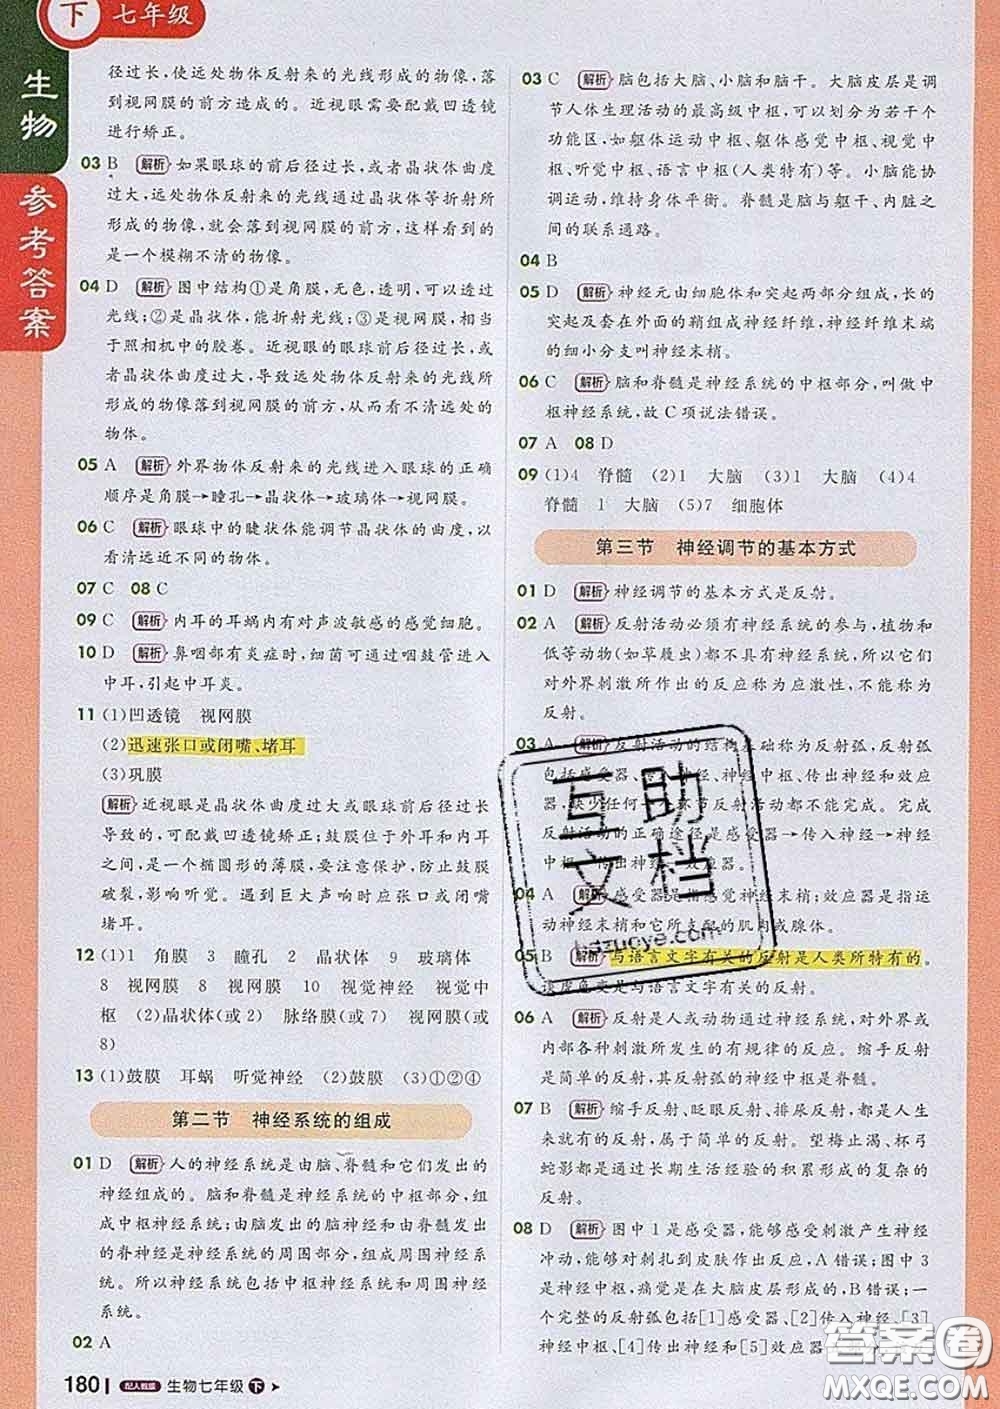 下 七年级
生物
参考答案
径过长,使远处物体反射来的光线形成的物像,落
到视网膜的前方造成的。近视眼需要配戴凹透镜
进行矫正。
03 B 解析 如果眼球的前后径过长,或者晶状体曲度
过大,远处物体反射来的光线通过晶状体等折射所
形成的物像,就会落到视网膜的前方,这样看到的
是一个模糊不清的物像。
04 D 解析 图中结构①是角膜,无色,透明,可以透过
光线;②是晶状体,能折射光线;③是视网膜,相当
于照相机中的胶卷。近视眼的眼球前后径过长或
者晶状体曲度过大,导致远处物体反射来的光线所
形成的物像落到视网膜的前方,从而看不清远处的
物体。
05 A 解析 外界物体反射来的光线进入眼球的正确
顺序是角膜→瞳孔→晶状体→玻璃体→视网膜。
06 C 解析 眼球中的睫状体能调节晶状体的曲度,以
看清远近不同的物体。
07 C 08 C
09 C 解析 内耳的耳蜗内有对声波敏感的感觉细胞。
10 D 解析 鼻咽部有炎症时,细菌可通过咽鼓管进入
中耳,引起中耳炎。
11 (1)凹透镜 视网膜
(2)迅速张口或闭嘴、堵耳
(3)巩膜
解析 近视眼是晶状体曲度过大或眼球前后径过长
导致的,可配戴凹透镜矫正;鼓膜位于外耳和内耳
之间,是一个椭圆形的薄膜,要注意保护,防止鼓膜
破裂,影响听觉。遇到巨大声响时应张口或闭嘴
堵耳。
12 (1)1 角膜 3 瞳孔 2 晶状体 9 玻璃体
8 视网膜 8 视网膜 10 视觉神经 视觉中
枢 (2)晶状体(或2) 脉络膜(或7) 视网膜(或
8)
13 (1)鼓膜 耳蜗 听觉神经 (2)鼓膜 (3)①②④
第二节 神经系统的组成
01 D 解析 人的神经系统是由脑、脊髓和它们发出的
神经组成的。脑和脊髓是神经系统的中枢部分,组
成中枢神经系统;由脑发出的脑神经和脊髓发出
的脊神经是神经系统的周围部分,组成周围神经系
统。所以神经系统包括中枢神经系统和周围神经
系统。
02 A
180 配人教版 生物七年级 下
03 C 解析 脑包括大脑、小脑和脑干。大脑皮层是调
节人体生理活动的最高级中枢,可以划分为若干个
功能区,如躯体运动中枢、躯体感觉中枢、视觉中
枢、听觉中枢、语言中枢(人类特有)等。小脑能协
调运动,维持身体平衡。脊髓是脑与躯干、内脏之
间的联系通路。
04 B
05 D 解析 神经元由细胞体和突起两部分组成,长的
突起及套在外面的鞘组成神经纤维,神经纤维末端
的细小分支叫神经末梢。
06 C 解析 脑和脊髓是神经系统的中枢部分,叫做中
枢神经系统,故C项说法错误。
07 A 08 D
09 (1)4 脊髓 (2)1 大脑 (3)1 大脑 (4)4
脊髓 1 大脑 (5)7 细胞体
第三节 神经调节的基本方式
01 D 解析 神经调节的基本方式是反射。
02 A 解析 反射活动必须有神经系统的参与,植物和
低等动物(如草履虫)都不具有神经系统,所以它们
对外界刺激所作出的反应称为应激性,不能称为
反射。
03 A 解析 反射活动的结构基础称为反射弧,反射弧
包括感受器、传入神经、神经中枢、传出神经和效应
器,缺少任何一个环节反射活动都不能完成。完成
反射活动的正确途径是感受器→传入神经→神经
中枢→传出神经→效应器。
04 A 解析 感受器是指感觉神经末梢;效应器是指运
动神经末梢和它所支配的肌肉或腺体。
05 B 解析 与语言文字有关的反射是人类所特有的。
谈虎色变是与语言文字有关的反射。
06 A 解析 反射是人或动物通过神经系统,对外界或
内部各种刺激所发生的有规律的反应。缩手反射
是简单的反射,其反射的神经中枢是脊髓。
07 B 解析 缩手反射、眨眼反射、排尿反射,都是人生
来就有的,属于简单的反射。望梅止渴、杯弓
蛇影都是通过长期生活经验的积累形成的复杂的
反射。
08 D 解析 图中1是感受器,能够感受刺激产生神经
冲动,能够对刺扎到皮肤作出反应,A错误;图中3
是神经中枢,痛觉是在大脑皮层形成的,B错误;一
个完整的反射弧包括[1]感受器、[2]传入神经、[3]
神经中枢、[4]传出神经和[5]效应器
互助
文档
hszuoye.com
答案圈
MXQE.COM